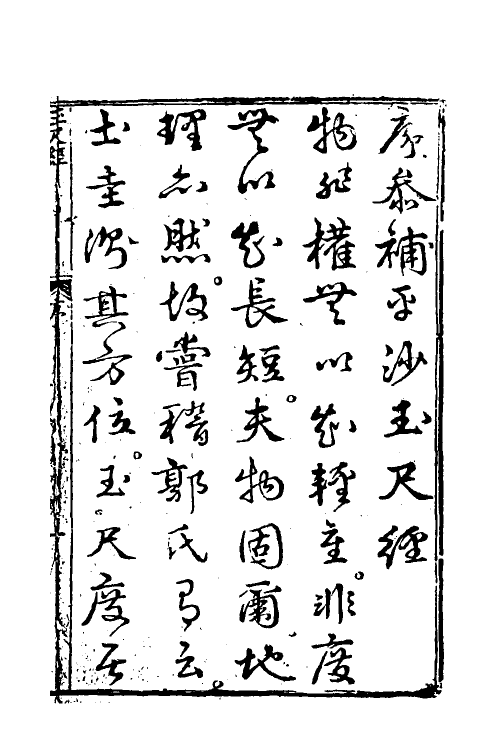 序叅補平沙玉尺經
物非權無以知輕重。非度
無以知長短。夫物固爾地
理亦然。故嘗稽郭氏有云。
土圭測其方位。玉尺度其